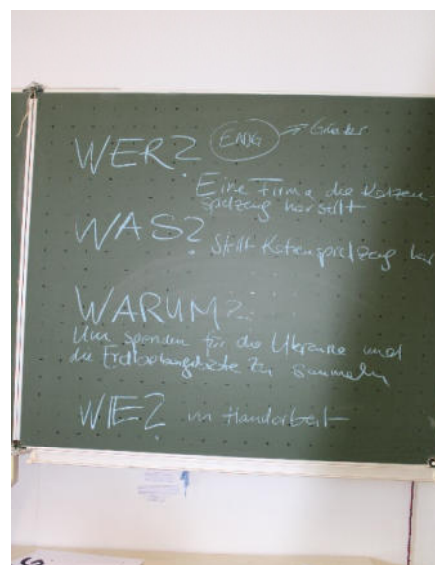 WER?
Eine Firma die Katzen-
spielzeug herstellt
WAS? Stellt Katzenspielzeug her
WARUM?
Um spenden für die Ukraine und
die Erdbebengebiete zu sammeln
WIE? in Handarbeit